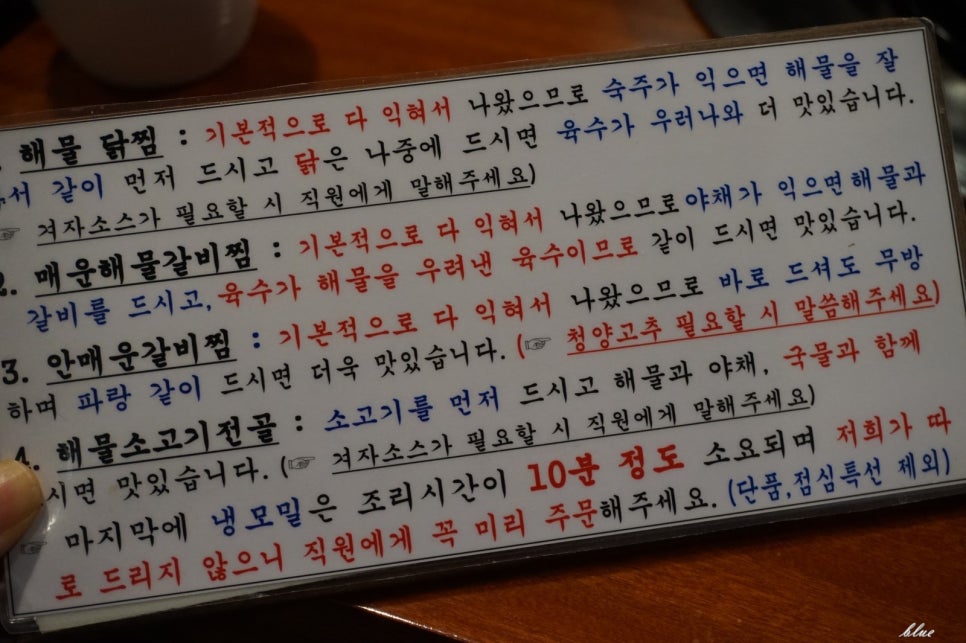 해물 닭찜 : 기본적으로 다 익혀서 나왔으므로 숙주가 익으면 해물을 잘
서 같이 먼저 드시고 닭은 나중에 드시면 육수가 우러나와 더 맛있습니다.
☞ 겨자소스가 필요할 시 직원에게 말해주세요)
2. 매운해물갈비찜 : 기본적으로 다 익혀서 나왔으므로야채가 익으면해물과
갈비를 드시고,육수가 해물을 우려낸 육수이므로 같이 드시면 맛있습니다.
3. 안매운갈비찜 : 기본적으로 다 익혀서 나왔으므로 바로 드셔도 무방
하며 파랑 같이 드시면 더욱 맛있습니다.(☞ 청양고추 필요할 시 말씀해주세요)
4. 해물소고기전골 : 소고기를 먼저 드시고 해물과 야채, 국물과 함께
시면 맛있습니다.(☞ 겨자소스가 필요할 시 직원에게 말해주세요)
☞ 마지막에 냉모밀은 조리시간이 10분 정도 소요되며 저희가 따
로 드리지 않으니 직원에게 꼭 미리 주문해주세요.(단품,점심특선 제외)
blue